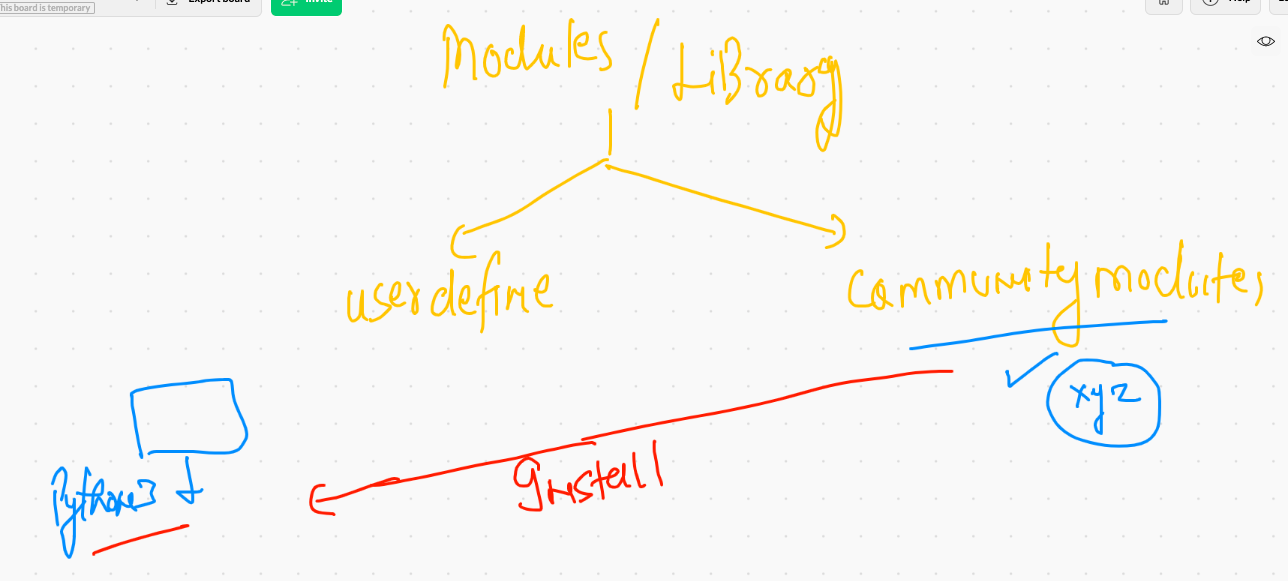 This board is temporary
Export board
Invite
Help
Modules / LiBrary
userdefine
Community modules
xyz
Python3
Install